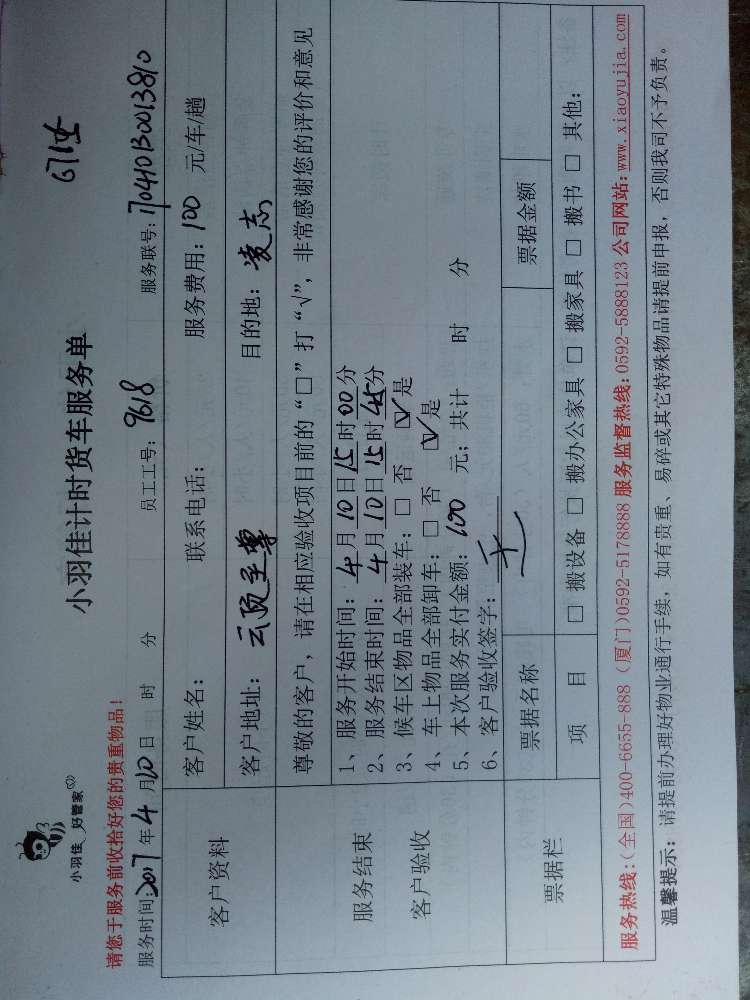 小羽佳 好管家
小羽佳计时货车服务单
请您于服务前收拾好您的贵重物品！
服务时间：2017年4月10日 时 分 员工工号：9618 服务联号：170410130013810
客户资料
客户姓名： 联系电话： 服务费用：100 元/车/趟
客户地址： 目的地：凌志
服务结束
客户验收
尊敬的客户，请在相应验收项目前的“□”打“√”，非常感谢您的评价和意见
1、服务开始时间：4月10日15时00分
2、服务结束时间：4月10日15时45分
3、候车区物品全部装车：□ 否 ☑ 是
4、车上物品全部卸车：□ 否 ☑ 是
5、本次服务实付金额：100 元；共计 时 分
6、客户验收签字：
票据栏
票据名称 票据金额
项 目 □ 搬设备 □ 搬办公家具 □ 搬家具 □ 搬书 □ 其他：
服务热线：(全国)400-6655-888 (厦门)0592-5178888 服务监督热线：0592-5888123 公司网站：www.xiaoyujia.com
温馨提示：请提前办理好物业通行手续，如有贵重、易碎或其它特殊物品请提前申报，否则我司不予负责。